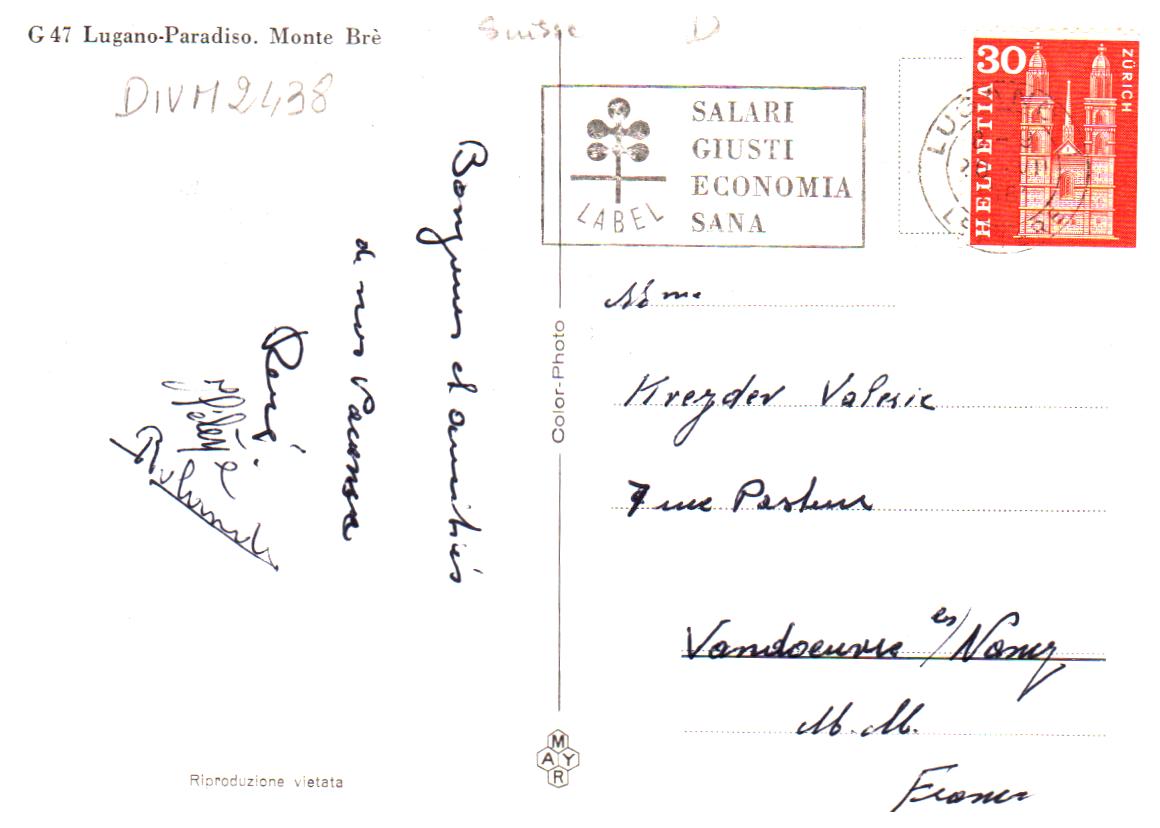 G 47 Lugano-Paradiso. Monte Brè
Suisse D
DIVM2438
SALARI
GIUSTI
ECONOMIA
SANA
LABEL
30
HELVETIA
ZÜRICH
LUGANO
Bonjour et amitiés
de nos vacances
René
Hélène
Color-Photo
Mme
Kreyder Valerie
7 rue Pasteur
Vandoeuvre les/Nancy
M. M.
France
MAYR
Riproduzione vietata